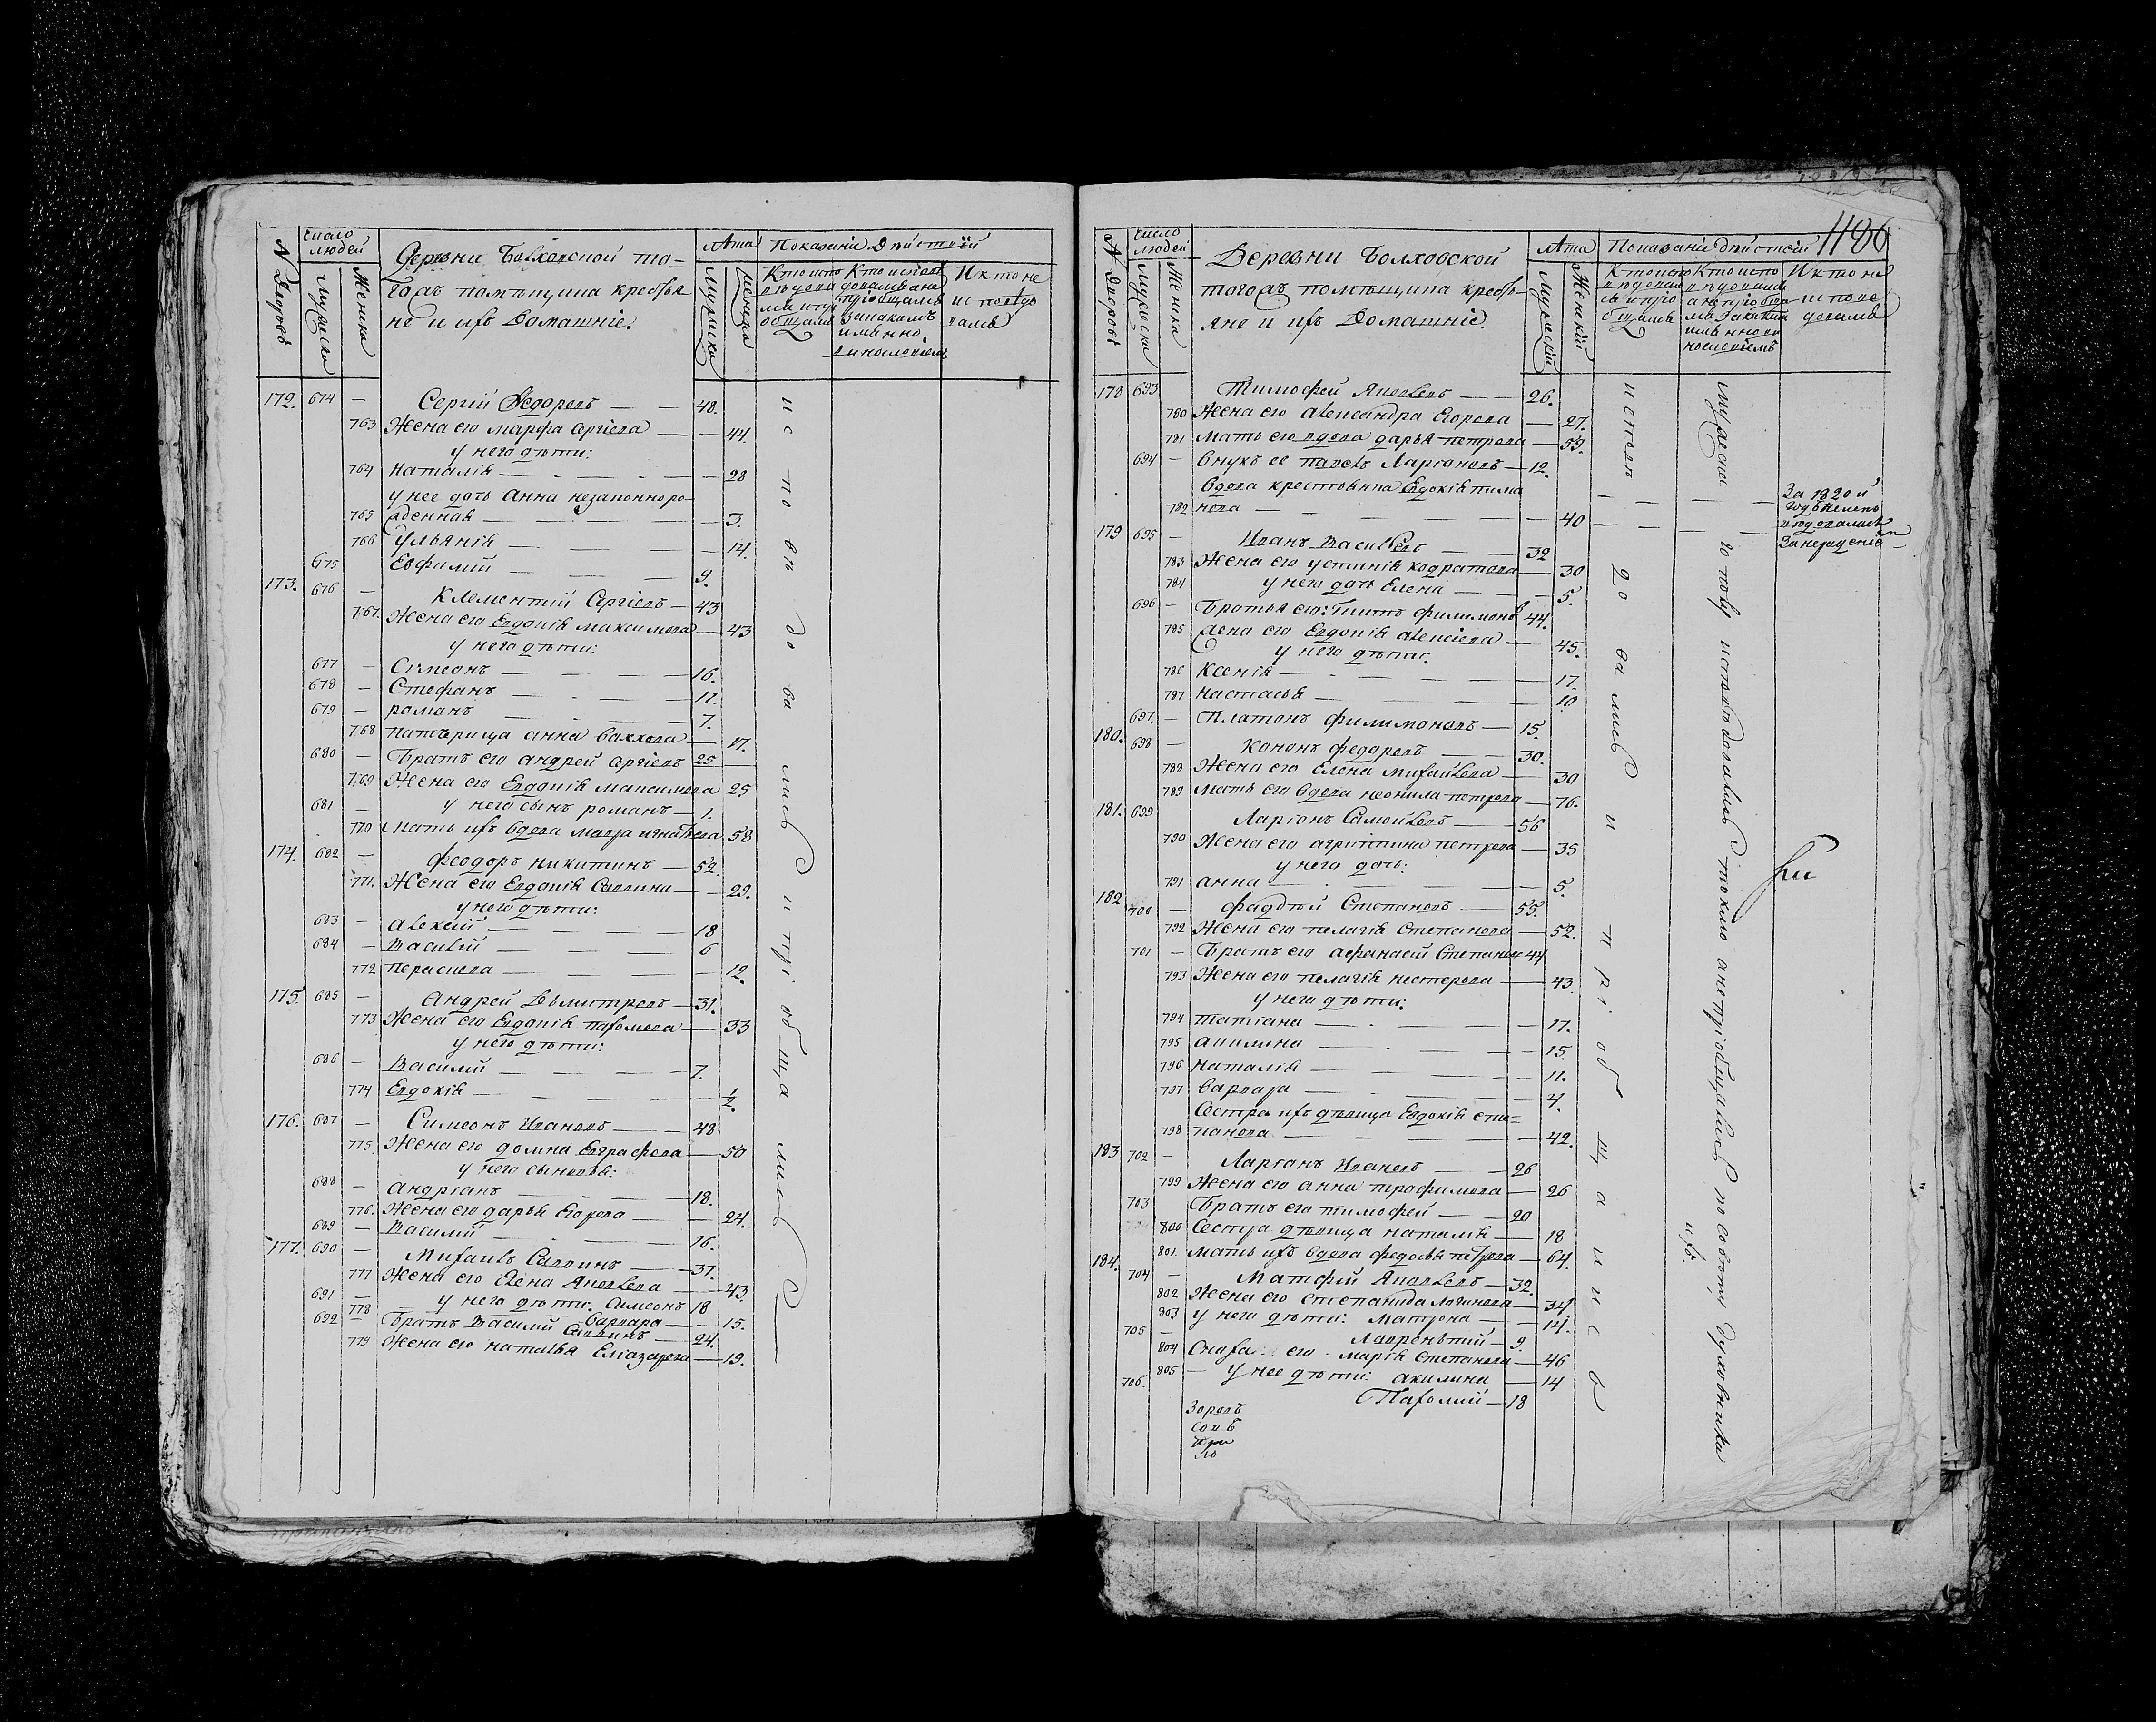 N Дворовъ
число людей
мужеска
женска
Деревни Болховской то-
гожъ помѣщика кресья
не и ихъ Домашніе.
Лѣта
Мужеска
женска
Показаніе Дѣйствій
Кто испо
вѣдова
лись и прі
общались
Кто исповѣ
довались а не
пріобщались
за какимъ
именно
винословіемъ
И кто не
исповѣдо
вались
172. 674 — Сергій Федоровъ — 48.
763 Жена его марфа Сергіева — 44.
у него дѣти:
764 Наталія — 28
у нее дочь Анна незаконноро-
765 жденная — 3.
766 Ульянія — 14.
675 Евфимій — 9.
173. 676 — Климентій Сергіевъ — 43
767. Жена его Евдокія максимова — 43
у него дѣти:
677 — Симеонъ — 16.
678 — Стефанъ — 11.
679 — романъ — 7.
768 патчерица анна — 17.
680 — Братъ его андрей Сергіевъ 25
769 Жена его Евдокія Максимова 25
681 — у него сынъ романъ — 1.
770 Мать ихъ вдова мавра игнатьева 58
174. 682 — феодоръ никитинъ — 52.
771. Жена его Евдокія Саввина — 29.
у него дѣти:
683 — алексій — 18
684 — Василій — 6
772 параскева — 12.
175. 685 — Андрей Дьмитревъ — 31.
773 Жена его Евдокія пахомова — 33
у него дѣти:
686 — Василій — 7.
774 Евдокія — 1/2.
176. 687 — Симеонъ Ивановъ — 48
775 Жена его домна Евграфова — 50
у него сыновья:
688 — андріанъ — 18.
776. Жена его дарья Егорова — 24.
689 — Василій — 16.
177. 690 — Михаилъ Саввинъ — 37.
777 Жена его Елена Яковлева — 43.
691 — у него дѣти. Симеонъ 18
778 — Варвара — 15.
692 — Братъ Василій Саввинъ — 24.
779 Жена его наталья Елиазарова — 19.
исповѣдовались и пріобщались
1186
N Дворовъ
число людей
Мужеска
Женска
Деревни Болховской
тогожъ помѣщика кресьь-
яне и ихъ Домашніе.
Лѣта
Мужескій
Женскій
Показаніе дѣйствій
Кто испо
вѣдова
сь и пріо
бщались
Кто испо
вѣдовали
а не пріобща
лись за какимъ
имьнно ви
нословіемъ
И кто не
испове
довались
178 693 Тимофей Яковлевъ — 26.
780 Жена его александра Егорова — 27.
781 Мать его вдова дарья петрова — 59.
694 — Внукъ ее павелъ Ларіоновъ — 12.
Вдова крестьянка Евдокія тима
782 нова — 40
За 1820 й
179 695 — Иванъ Васильевъ — 32
783 Жена его устинія кодратова — 30
784 у него дочь Елена — 5.
696 — Братья его: Титъ филимоновъ 44.
785 жена его Евдокія алексіева — 45.
у него дѣти:
786 Ксенія — 17.
787 настасья — 10
697. — Платонъ филимоновъ — 15.
180. 698 — Кононъ федоровъ — 30.
788 Жена его Елена михаилова — 30
789 Мать его вдова неонила петрова — 76.
181. 699 Ларіонъ Самойловъ — 56
790 Жена его агриппина петрова — 35
у него дочь:
791 анна — 5.
182 700 — фаддѣй Степановъ — 55.
792 Жена его пелагія Степанова — 52.
701 — Братъ его афанасій Степановъ 44
793 Жена его пелагія нестерова — 43.
у него дѣти:
794 татіана — 17.
795 акилина — 15.
796 наталія — 11.
797 варвара — 4.
Сестра ихъ дѣвица Евдокія сте-
798 панова — 42.
183 702 — Ларіонъ Ивановъ — 26
799 Жена его анна трофимова — 26
703 Братъ его тимофей — 20
800 Сестра дѣвица наталья — 18
801. Мать ихъ вдова федосья петрова — 64.
184. 704 — Матфей Яковлевъ — 32.
802 Жена его степанида логинова — 34
803 у него дѣти: матрона — 14.
705 — Лаврентій — 9.
804 Сноха его марія Степанова — 46
805 — у нее дѣти: акилина — 14
706. Пахомій — 18
исповѣдовались и пріобщались